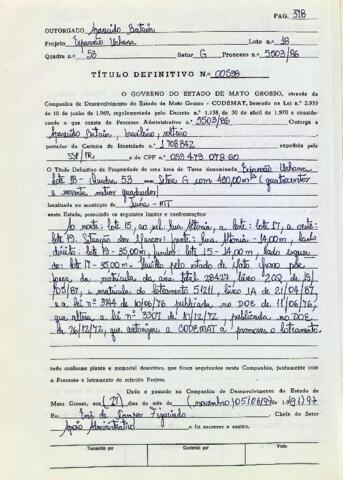 PAG. 378
OUTORGADO Aparecido Batain
Projeto Expansão Urbana Lote n.º 18
Quadra n.º 53 Setor G Processo n.º 5503/86
TÍTULO DEFINITIVO N.º 00598
O GOVERNO DO ESTADO DE MATO GROSSO, através da
Companhia de Desenvolvimento do Estado de Mato Grosso - CODEMAT, baseado na Lei n.º 2.933
10 de junho de 1969, regulamentada pelo Decreto n.º 1.138, de 30 de abril de 1970 e considerando
o que consta do Processo Administrativo n.º 5503/86 Outorga a
Aparecido Batain, brasileiro, solteiro
portador da Carteira de Identidade n.º 1708842 expedida pela
SSP/PR, e do CPF n.º 059 479 078 80
O Título Definitivo de Propriedade de uma área de Terra denominada Expansão Urbana
Lote 18 - Quadra 53 - Setor G com 490,00m² (quatrocentos
e noventa metros quadrados)
localizada no município de Juína - MT
neste Estado, possuindo os seguintes limites e confrontações:
Ao norte: lote 15, ao sul: rua Astória, a leste: lote 17, a oeste:
lote 19. Situação dos Marcos: frente: rua Astória - 14,00m, lado
direito: lote 19 - 35,00m, fundos: lote 15 - 14,00m, lado esquer
do: lote 17 - 35,00m. Havido pelo estado de Mato Grosso por
força da matrícula de área total 28427 livro 202 de 19/
03/87, e matrícula do loteamento 51211 livro 1A de 21/04/87,
e a lei nº 3744 de 10/06/76 publicada no DOE de 11/06/76,
que altera a lei nº 3307 de 10/12/72, publicada no DOE
de 26/12/72, que autorizou a CODEMAT a promover o loteamento.
tudo conforme planta e memorial descritivo, que ficam arquivados nesta Companhia, juntamente com
o Processo e loteamento do referido Projeto.
Dado e passado na Companhia de Desenvolvimento do Estado de
Mato Grosso, aos (21) dias do mês de (novembro) 05/06/97 19(91) 97
Eu de Campos Figueiredo Chefe do Setor
Apoio Administrativo o fiz escrever e assino.
Transcrito por Conferido por Visto